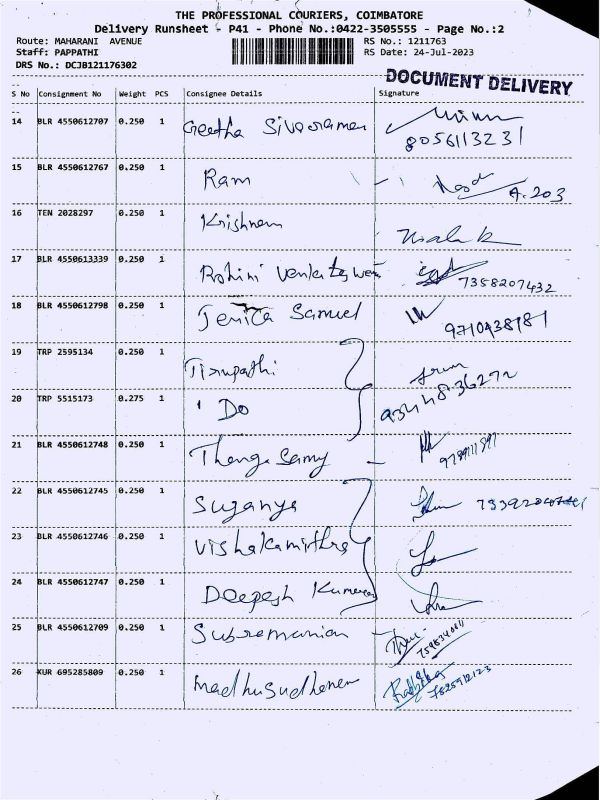 THE PROFESSIONAL COURIERS, COIMBATORE
Delivery Runsheet - P41 - Phone No.:0422-3505555 - Page No.:2
Route: MAHARANI AVENUE RS No.: 1211763
Staff: PAPPATHI RS Date: 24-Jul-2023
DRS No.: DCJB121176302
DOCUMENT DELIVERY
S No Consignment No Weight PCS Consignee Details Signature
14 BLR 4550612707 0.250 1 Geetha Sivaraman
8056113231
15 BLR 4550612767 0.250 1 Ram A.203
16 TEN 2028297 0.250 1 Krishnan
17 BLR 4550613339 0.250 1 Rohini Venkateswaran 7358207432
18 BLR 4550612798 0.250 1 Jenita Samuel
19 TRP 2595134 0.250 1 Tirupathi
20 TRP 5515173 0.275 1 " Do
21 BLR 4550612748 0.250 1 Thanga Samy
22 BLR 4550612745 0.250 1 Suganya
23 BLR 4550612746 0.250 1 Vishakamithra
24 BLR 4550612747 0.250 1 Deepesh Kumaran
25 BLR 4550612709 0.250 1 Subramanian
26 KUR 695285809 0.250 1 Madhusudhanan